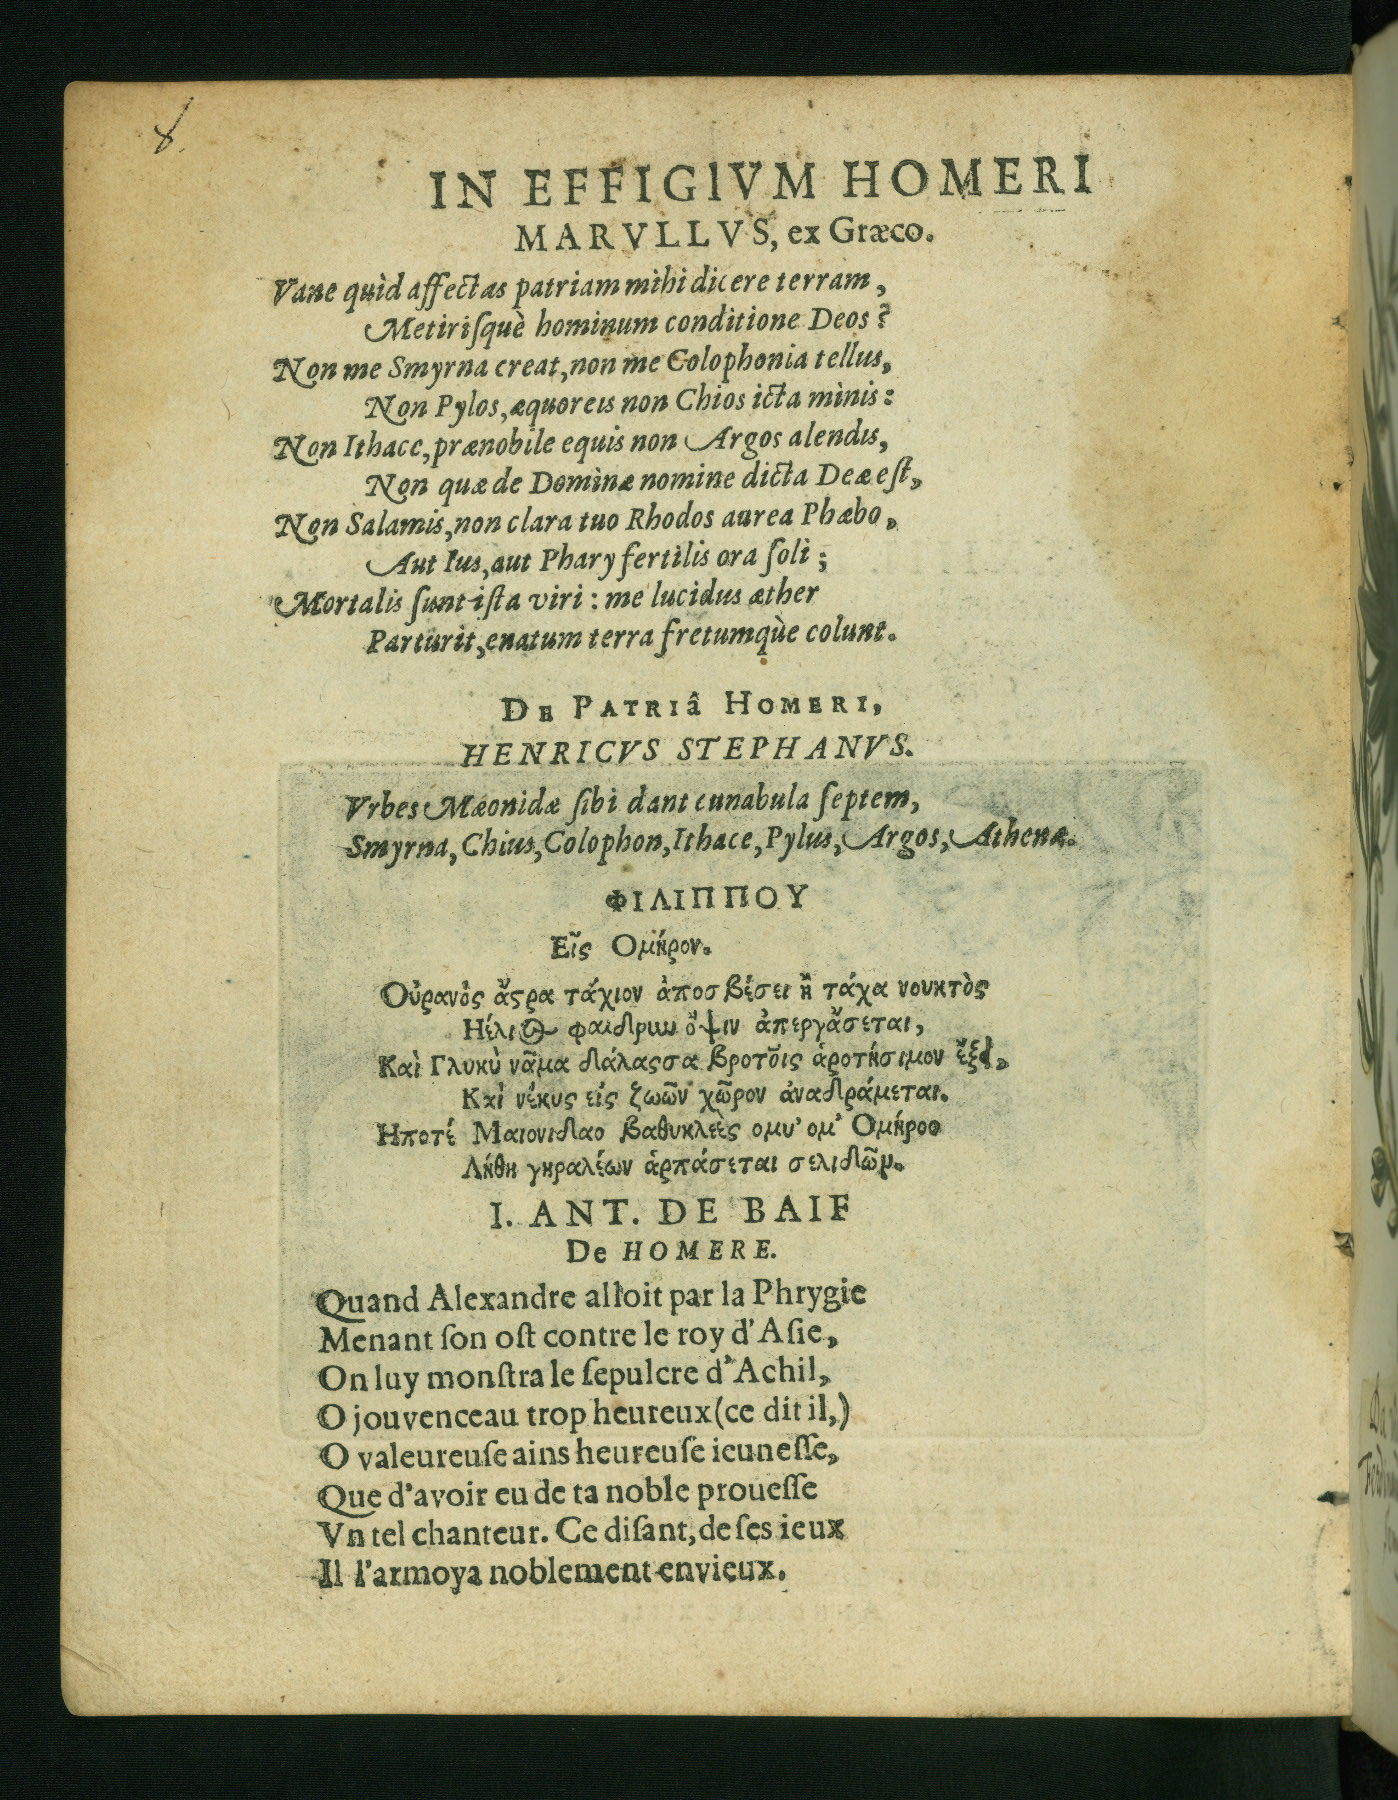 8.
IN EFFIGIVM HOMERI
MARVLLVS, ex Græco.
Vane quìd affectas patriam mihi dicere terram,
Metiriſquè hominum conditione Deos?
Non me Smyrna creat, non me Colophonia tellus,
Non Pylos, æquoreis non Chios icta minis:
Non Ithace, prænobile equis non Argos alendis,
Non quæ de Dominæ nomine dicta Deæ eſt,
Non Salamis, non clara tuo Rhodos aurea Phæbo,
Aut Ius, aut Phary fertilis ora ſoli;
Mortalis ſunt iſta viri: me lucidus æther
Parturit, enatum terra fretumqùe colunt.
DE PATRIâ HOMERI,
HENRICVS STEPHANVS.
Vrbes Mæonidæ ſibi dant cunabula ſeptem,
Smyrna, Chius, Colophon, Ithace, Pylus, Argos, Athenæ.
ΦΙΛΙΠΠΟΥ
Εῖς Ομήρον.
Οὐρανὸς ἄςρα τάχιον ἀποσβέσει ἢ τάχα νουκτὸς
Ηέλιος φαιδρην ὄψιν ἀπεργἄσεται,
Καὶ Γλυκὺ νᾶμα θάλαςσα βροτοῖς ἀροτήσιμον ἕξει,
Καὶ νέκυς εἰς ζωῶν χῶρον ἀναδράμεται.
Ηποτέ Μαιονιδαο βαθυκλεὲς ομυ' ομ' Ομήροο
Λήθη γηραλέων ἁρπάσεται σελιδῶμ.
I. ANT. DE BAIF
De HOMERE.
Quand Alexandre alloit par la Phrygie
Menant ſon oſt contre le roy d'Aſie,
On luy monſtra le ſepulcre d'Achil,
O jouvenceau trop heureux (ce dit il,)
O valeureuſe ains heureuſe ieuneſſe,
Que d'avoir eu de ta noble proueſſe
Vn tel chanteur. Ce diſant, de ſes ieux
Il l'armoya noblement envieux.